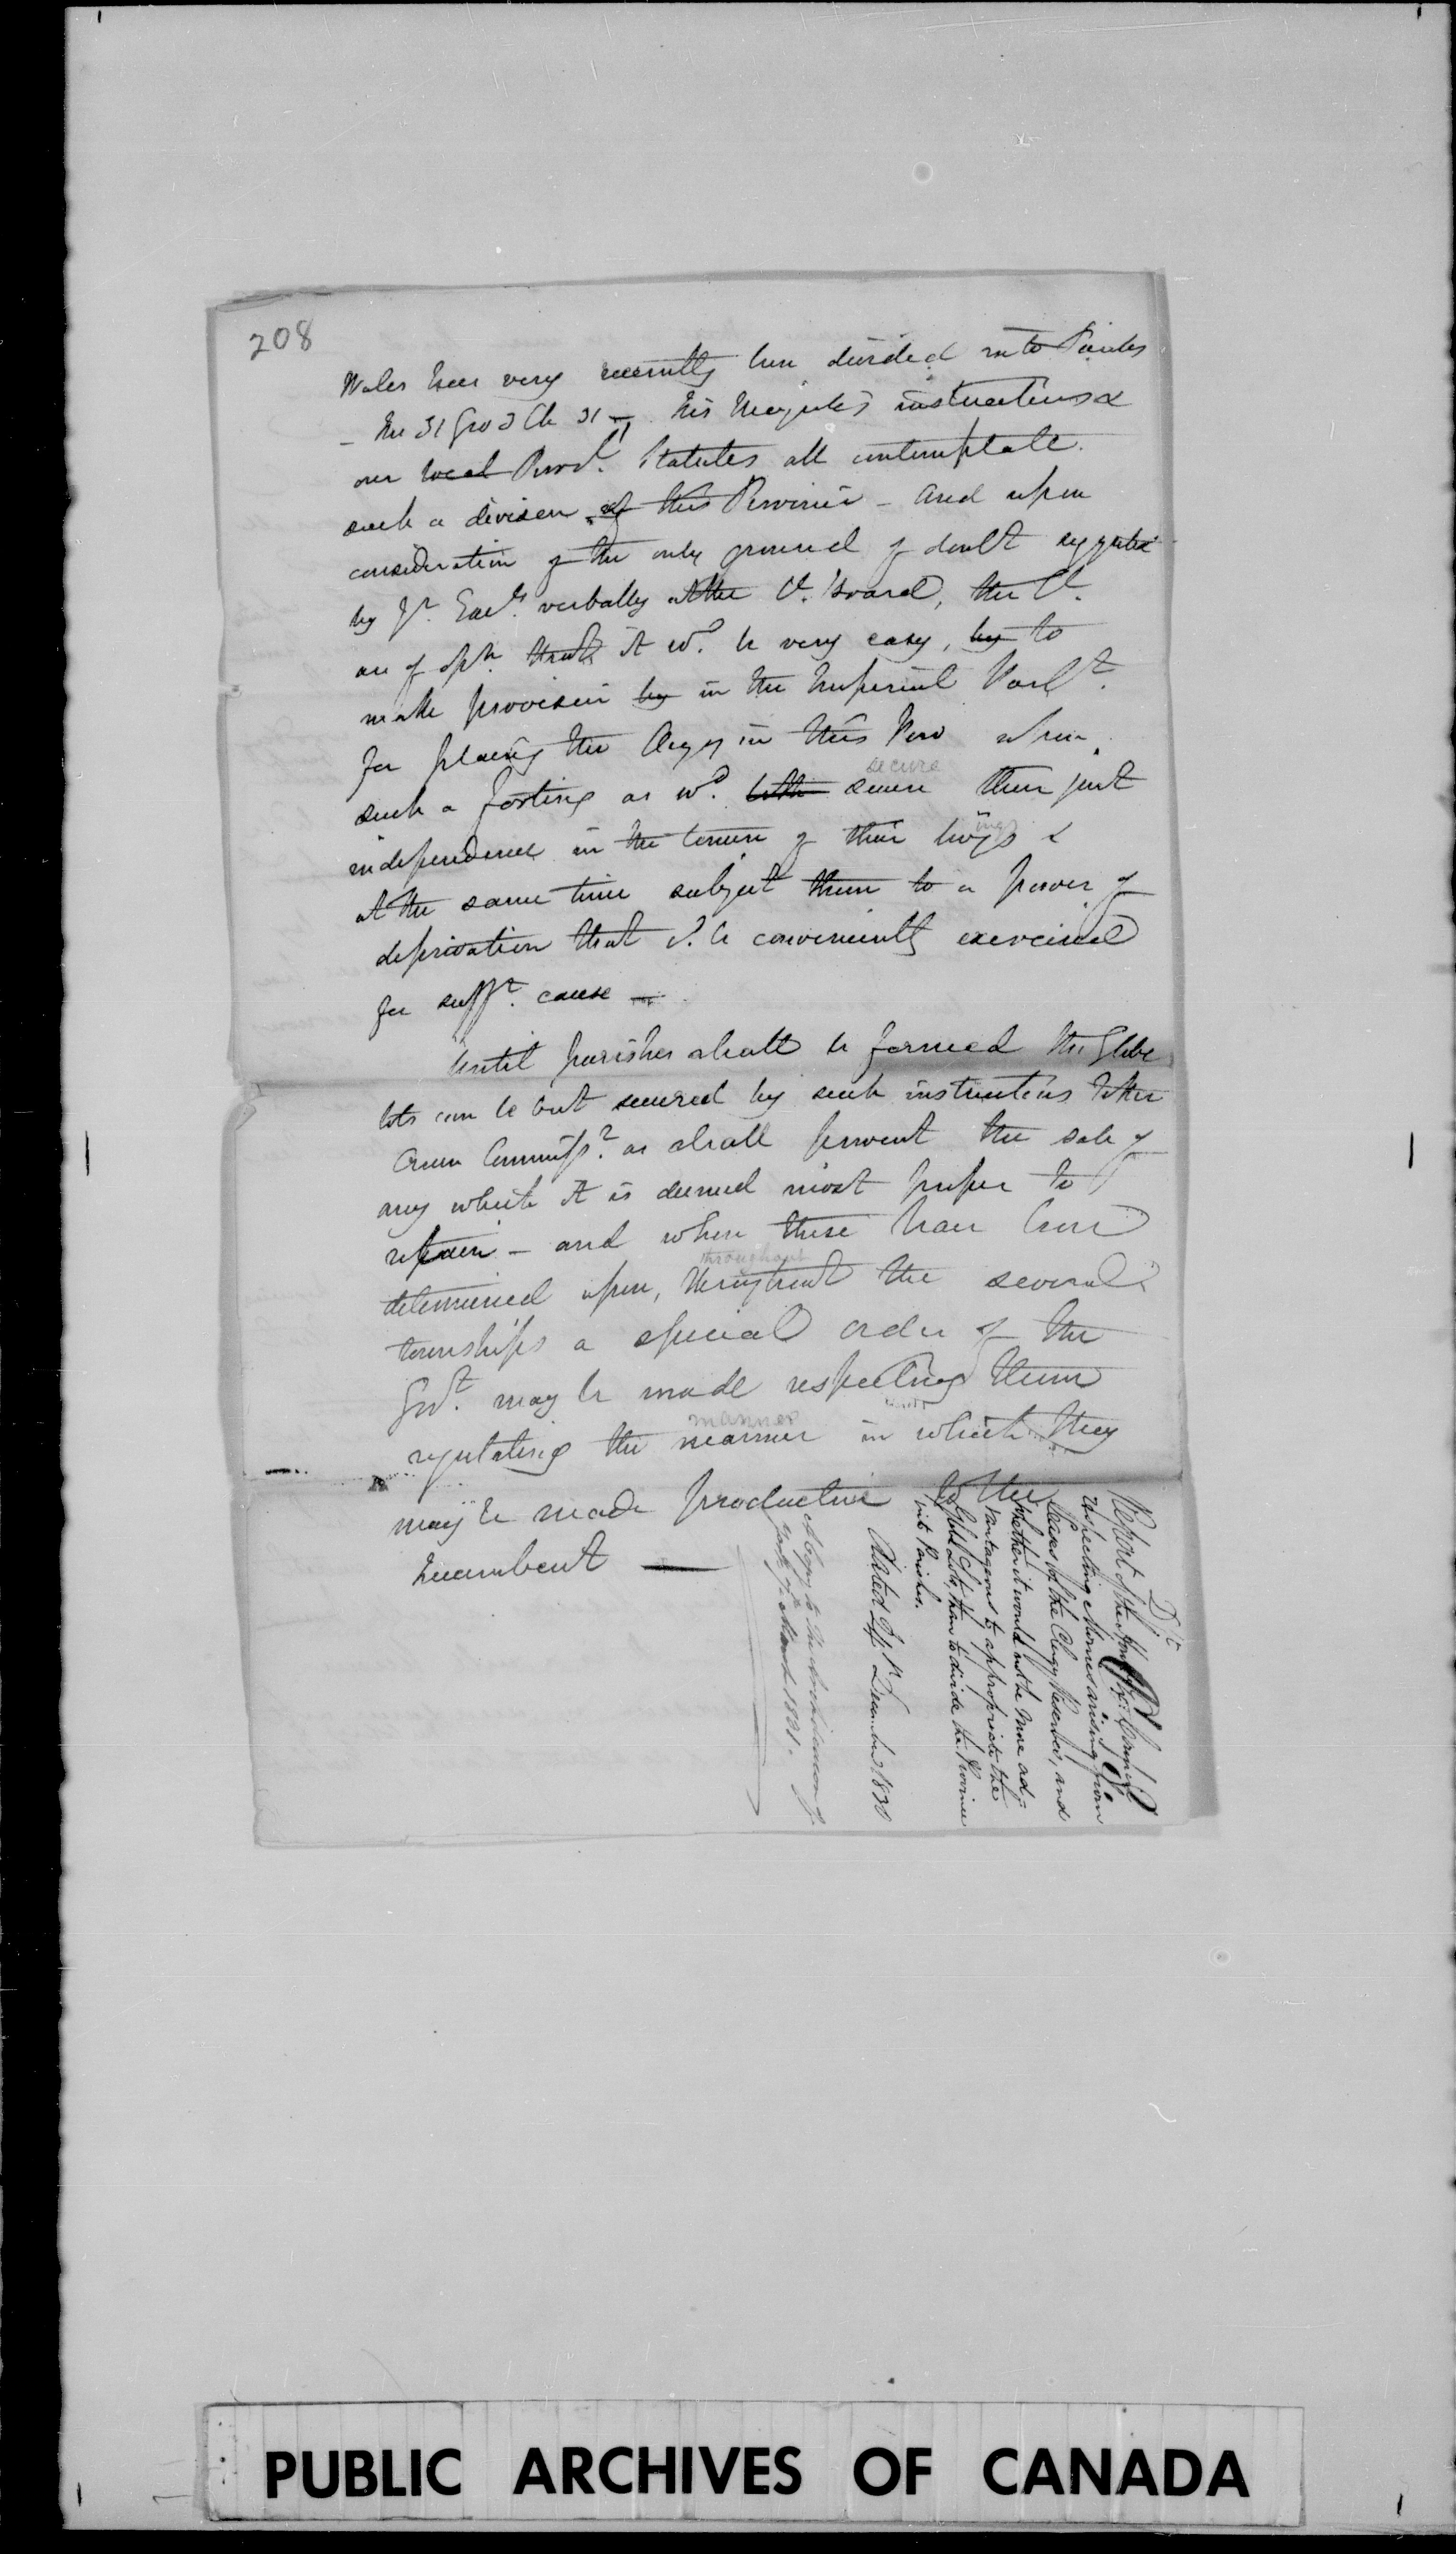 208
Wales have very recently been divided into Parishes
— The 31 Geo 3 Ch 31 — His Majesty's instructions &
our local Provl. Statutes all contemplate
such a division of this Province — And upon
consideration of the only ground of doubt suggested
by Yr. Excy. verbally at the Cl. Board, the Cl.
are of opn. that it wd. be very easy, by to
make provision by in the Imperial Parlt.
for placing the Clergy in this Prov upon
secure
such a footing as wd. both secure their just
ings
independence in the tenure of their livgs &
at the same time subject them to a power of
deprivation that cd. be conveniently exercised
for sufft. cause —
Until parishes shall be formed the Glebe
lots can be but secured by such instructions to the
Crown Commissr. as shall prevent the sale of
any which it is deemed most proper to
retain — and when these have been
throughout
determined upon, throughout the several
townships a special order of the
Govt. may be made respecting them
manner
regulating the manner in which they
may be made productive to the
Incumbent —
Dft
Report of the Honble Ex: Council
respecting Monies arising from
Leases of the Clergy Reserves, and
whether it would not be more ad-
vantageous to appropriate the
Glebe Lots, than to divide the Province
into Parishes.
Dated December 1830
A Copy to the Archdeacon of
York March 1831.
PUBLIC ARCHIVES OF CANADA